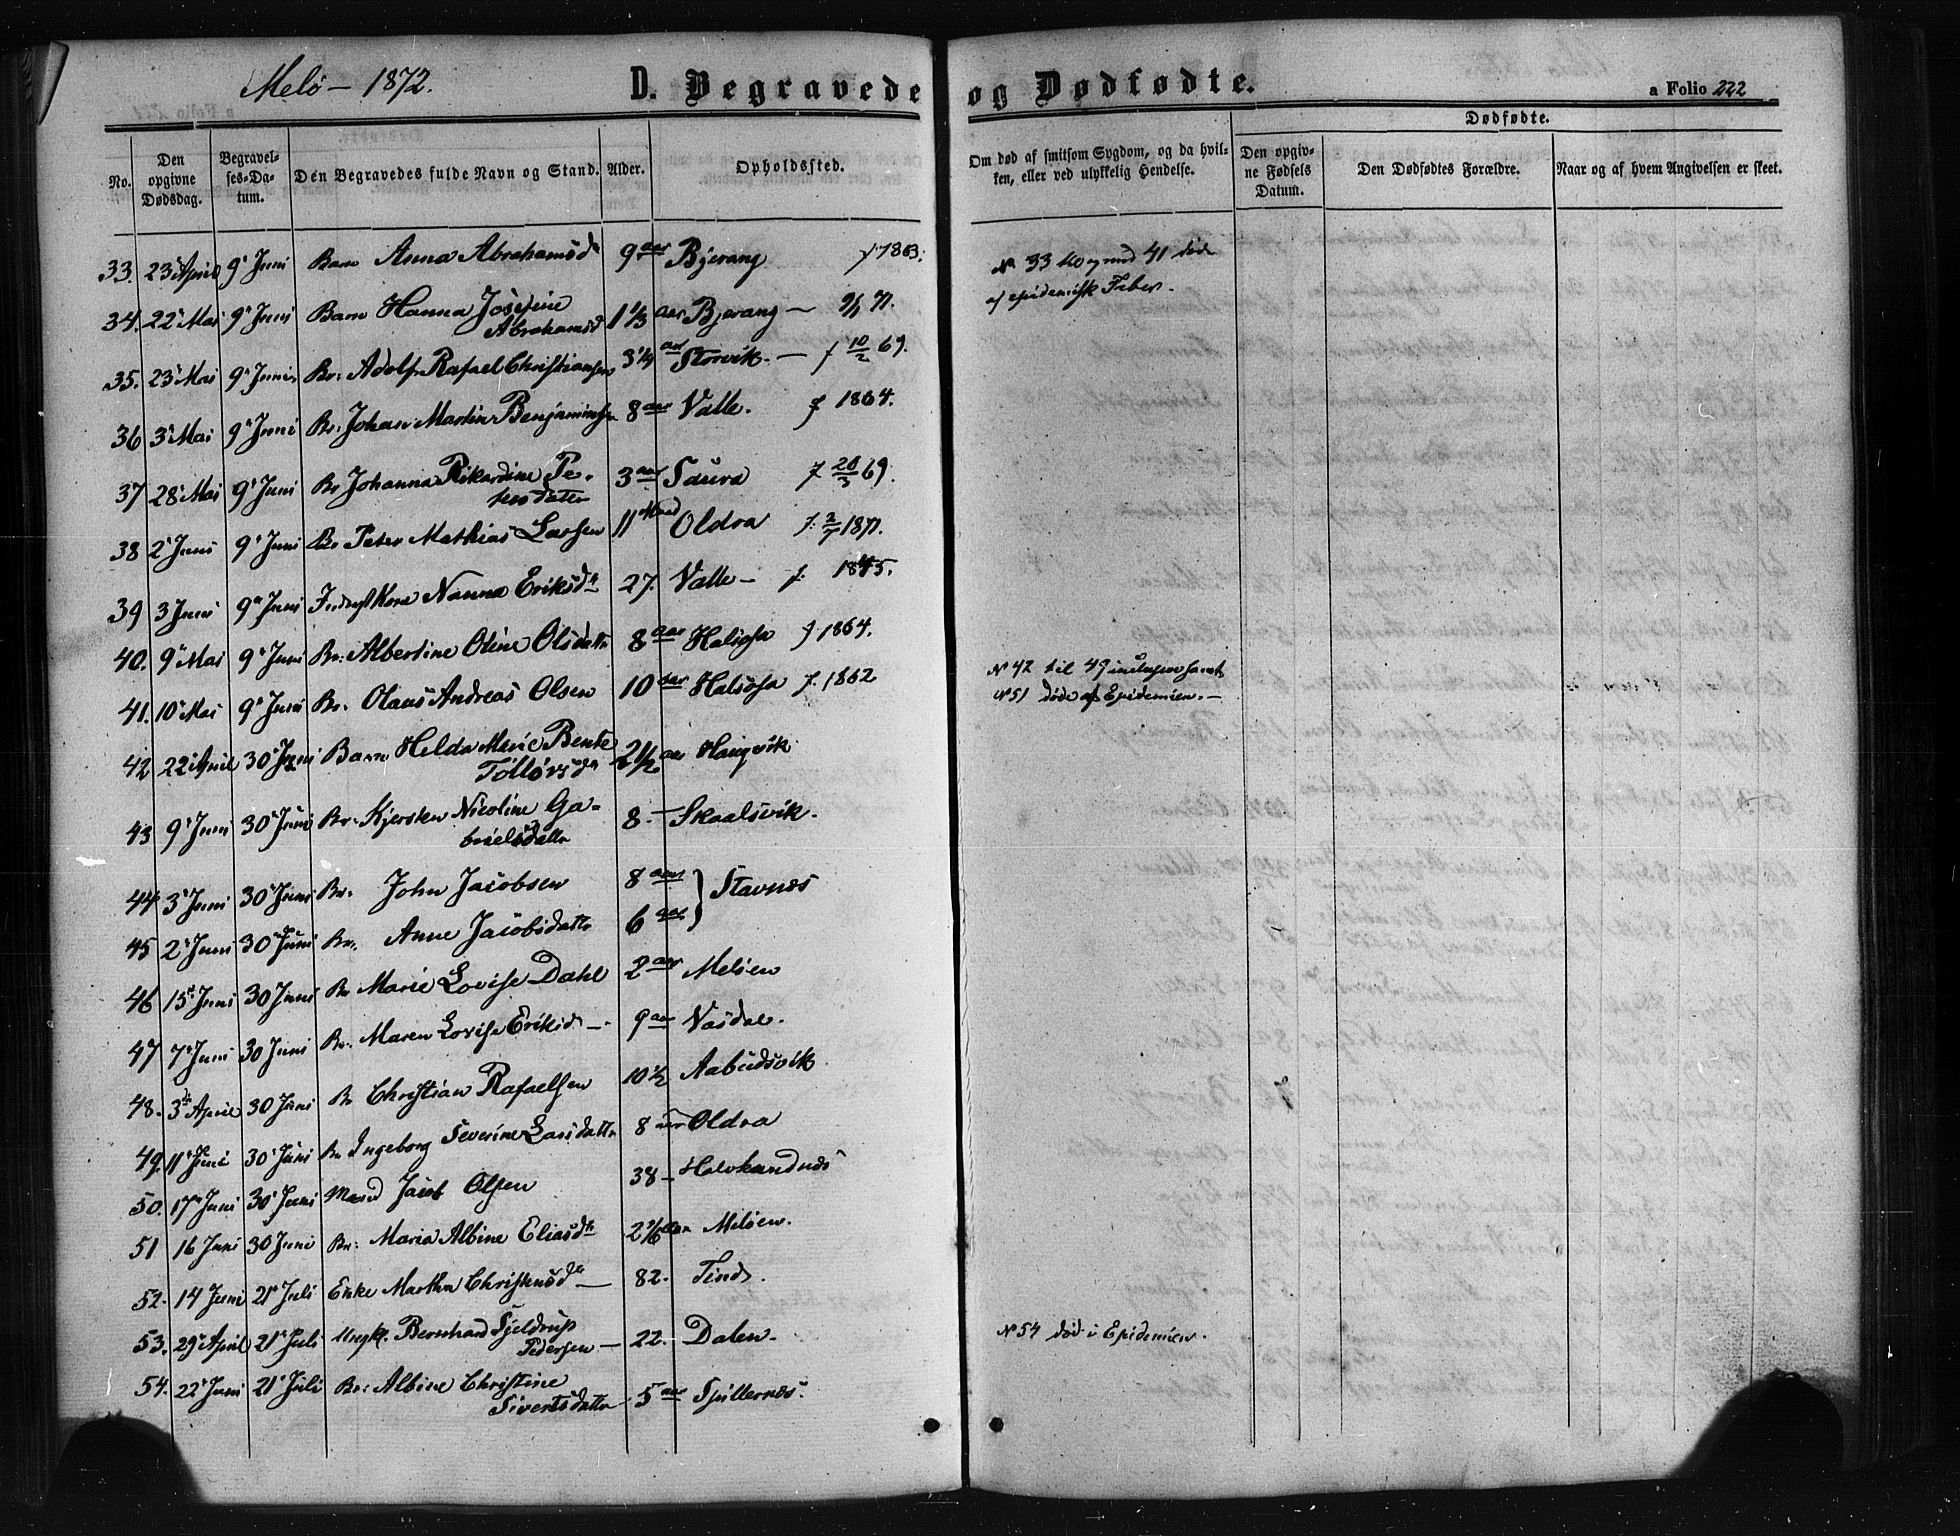 Melö – 1872.
D. Begravede og Dødfødte.
a Folio 222
No.
Den opgivne Dødsdag.
Begravel-
ses-Da-
tum.
Den Begravedes fulde Navn og Stand.
Alder.
Opholdssted.
Om død af smitsom Sygdom, og da hvil-
ken, eller ved ulykkelig Hendelse.
Dødfødte.
Den opgiv-
ne Fødsels
Datum.
Den Dødfødtes Forældre.
Naar og af hvem Angivelsen er skeet.
33. 23 April 9 Juni Barn Anna Abrahamsd 9 aar Bjerang f 1863.
34. 22 Mai 9 Juni Barn Hanna Josefine
Abrahamsd 1 1/3 aar Bjerang – 71.
35. 23 Mai 9 Juni Br. Adolf Rafael Christiansen 3 1/4 aar Storvik – f 10/2 69.
36 3 Mai 9 Juni Br. Johan Martin Benjaminsen 8 aar Valle. f 1864.
37 28 Mai 9 Juni Br Johanna Rikardine Pe-
tersdatter 3 aar Saura f 20/3 69.
38 2 Juni 9 Juni Br Peter Mathias Larsen 11 Oldra f. 1871.
39 3 Juni 9 Juni Nanna Eriksd 27. Valle – f. 1845.
40. 9 Mai 9 Juni Br: Albertine Oline Olsdatter 8 aar Halsosa f 1864.
41. 10 Mai 9 Juni Br. Olaus Andreas Olsen 10 aar Halsosa f. 1862
42 22 April 30 Juni Barn Helda Marie Bente
Tollevsd 2 1/2 aar Haugvik
43 9 Juni 30 Juni Br. Kjersten Nicoline Ga-
brielsdatter 8 – Skaalsvik.
44 3 Juni 30 Juni Br. John Jacobsen 8 aar Stavnes
45 2 Juni 30 Juni Br. Anne Jacobsdatter 6 aar
46 15 Juni 30 Juni Br Marie Lovise Dahl 2 aar Meløen
47 7 Juni 30 Juni Br. Maren Lovise Eriksd – 9 aar Vasdal.
48. 3 April 30 Juni Br Christian Rafaelsen 10 1/2 Aabudsvik
49. 11 Juni 30 Juni Br Ingeborg Severine Larsdatter 8 aar Oldra
50. 17 Juni 30 Juni Mand Jacob Olsen 38 – Halvhandnes
51 16 Juni 30 Juni Br: Maria Albine Eliasd 2 1/6 aar Meløen.
52. 14 Juni 21 Juli Enke Martha Christensd – 82. Finds.
53. 29 April 21 Juli Ungk. Bernhard Tjeldrup
Pedersen – 22. Dalen.
54. 22 Juni 21 Juli Br: Albine Christine
Sivertsdatter 5 aar Spillernes.
No 33 40 og 41 døde
af epidemisk Feber.
No 42 til 49 inclusive samt
No 51 døde af Epidemien. –
No 54 død i Epidemien.